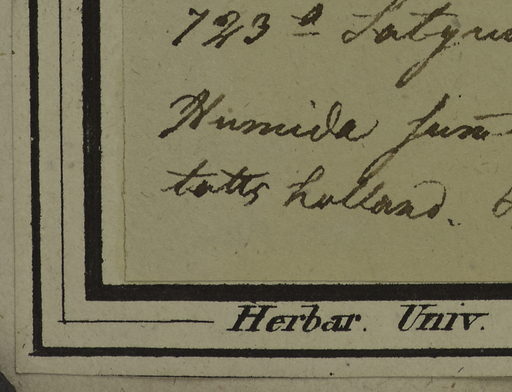 723 a Satyru
Numida fum
tatts holland.
Herbar. Univ.